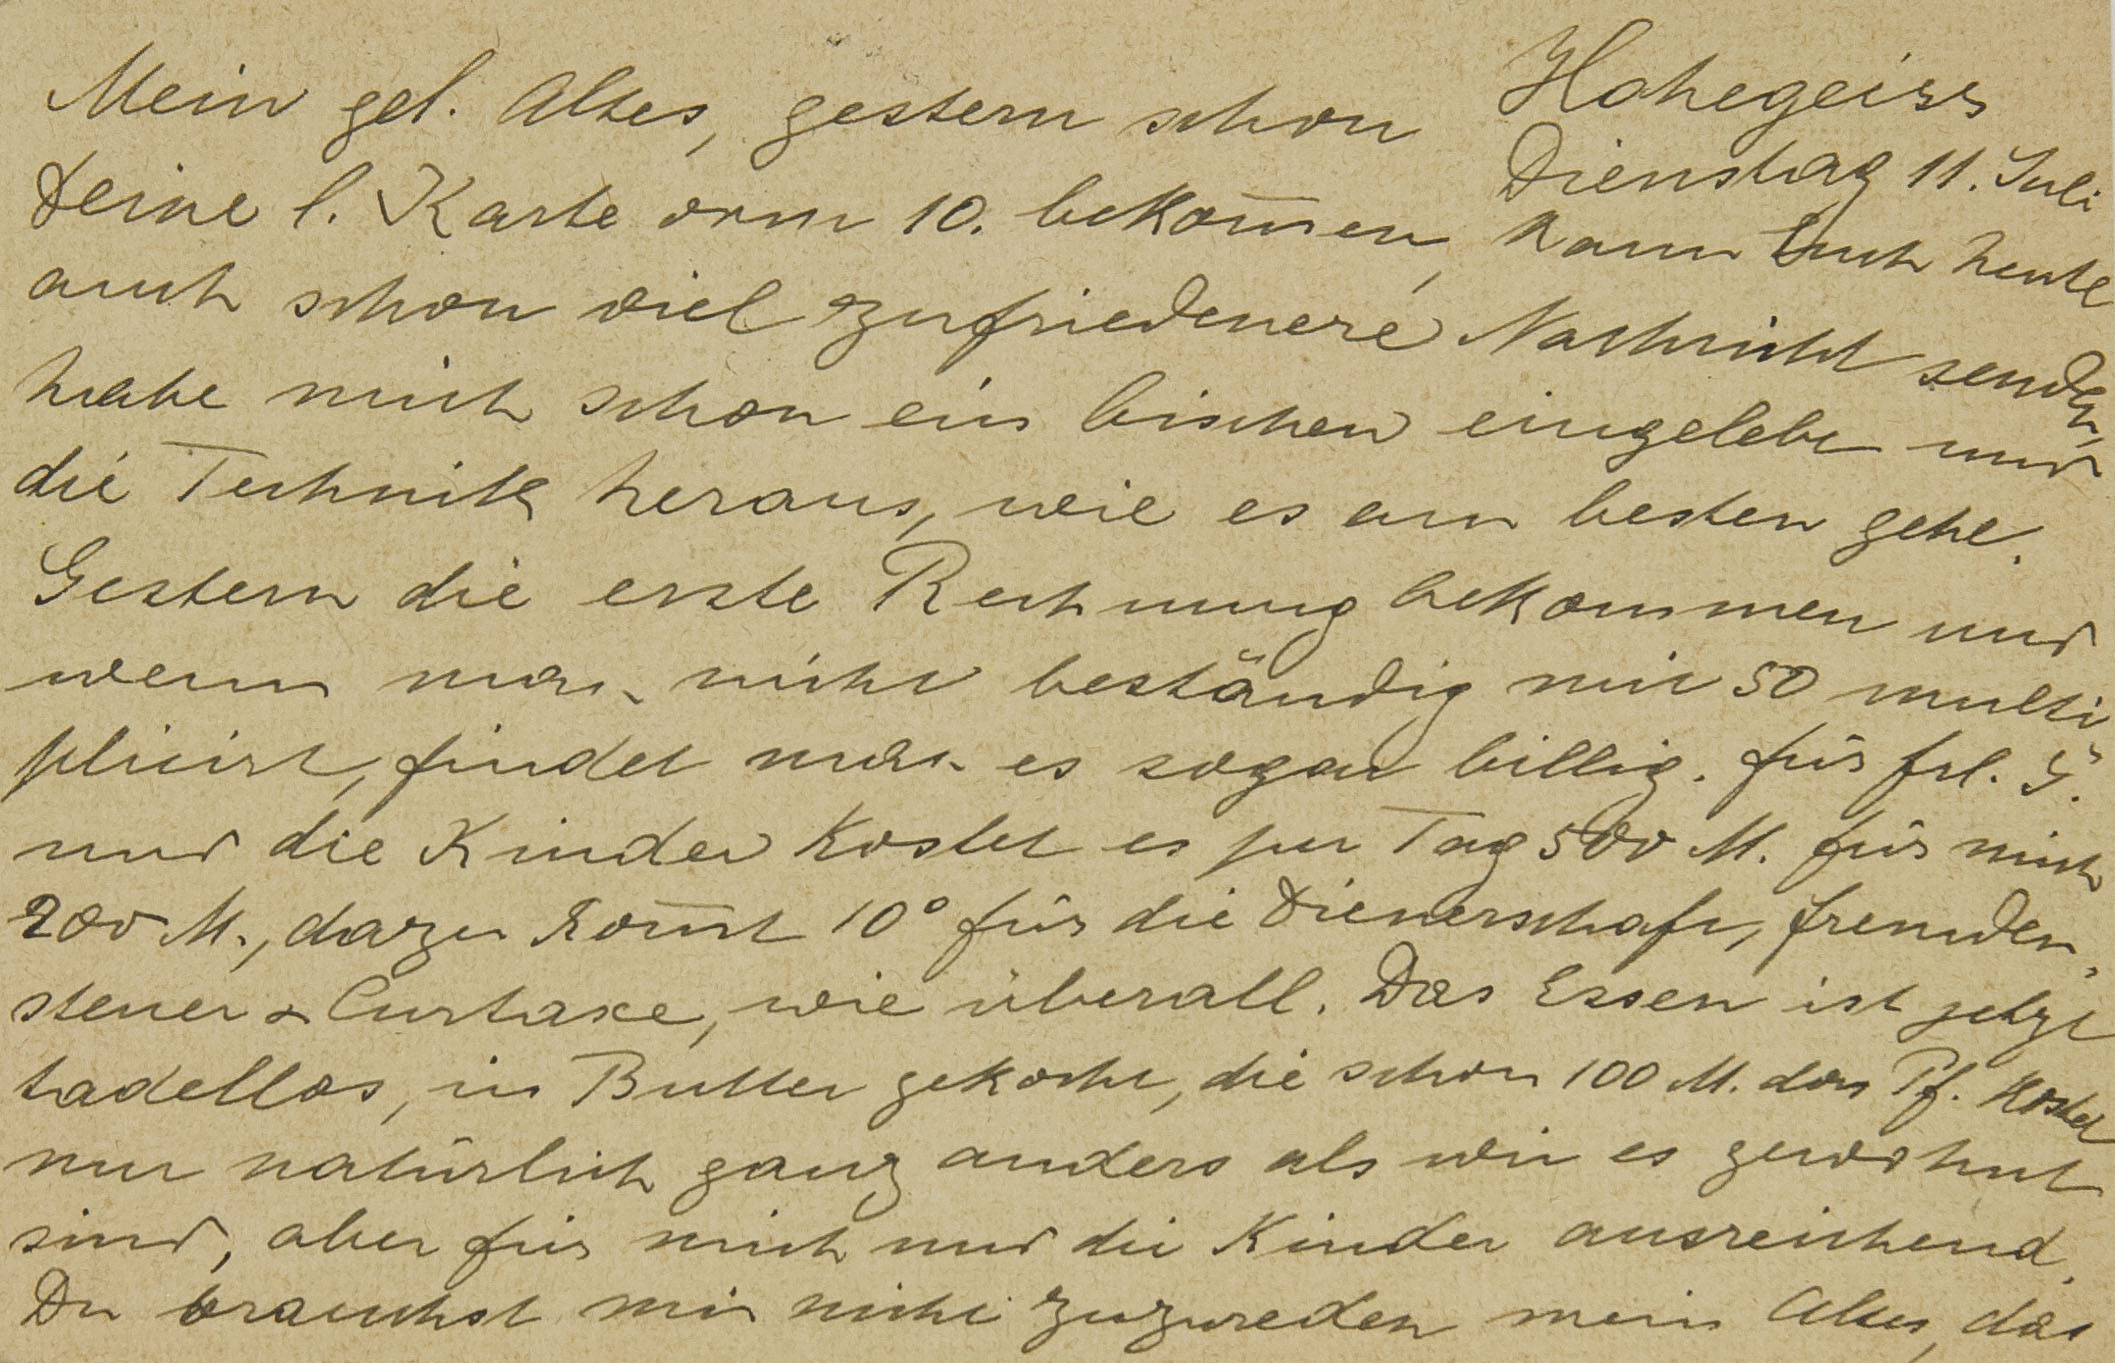 Hohegeiss
Dienstag 11. Juli
Mein gel. Altes, gestern schon
Deine l. Karte vom 10. bekom̅en, kann Euch heute
auch schon viel zufriedenere Nachricht senden,
habe mich schon ein bischen eingelebt und
die Technik heraus, wie es am besten geht.
Gestern die erste Rechnung bekommen und
wenn man nicht beständig mit 50 multi
plicirt, findet man es sogar billig. für frl. G.
und die Kinder kostet es per Tag 500 M. für mich
200 M., dazu kom̅t 10° für die Dienerschaft, fremden,
steuer & Curtaxe, wie überall. Das Essen ist jetzt
tadellos, in Butter gekocht, die schon 100 M. das Pf. kostet
nur natürlich ganz anders als wir es gewohnt
sind, aber für mich und die Kinder ausreichend.
Du brauchst mir nicht zuzureden mein Altes, das